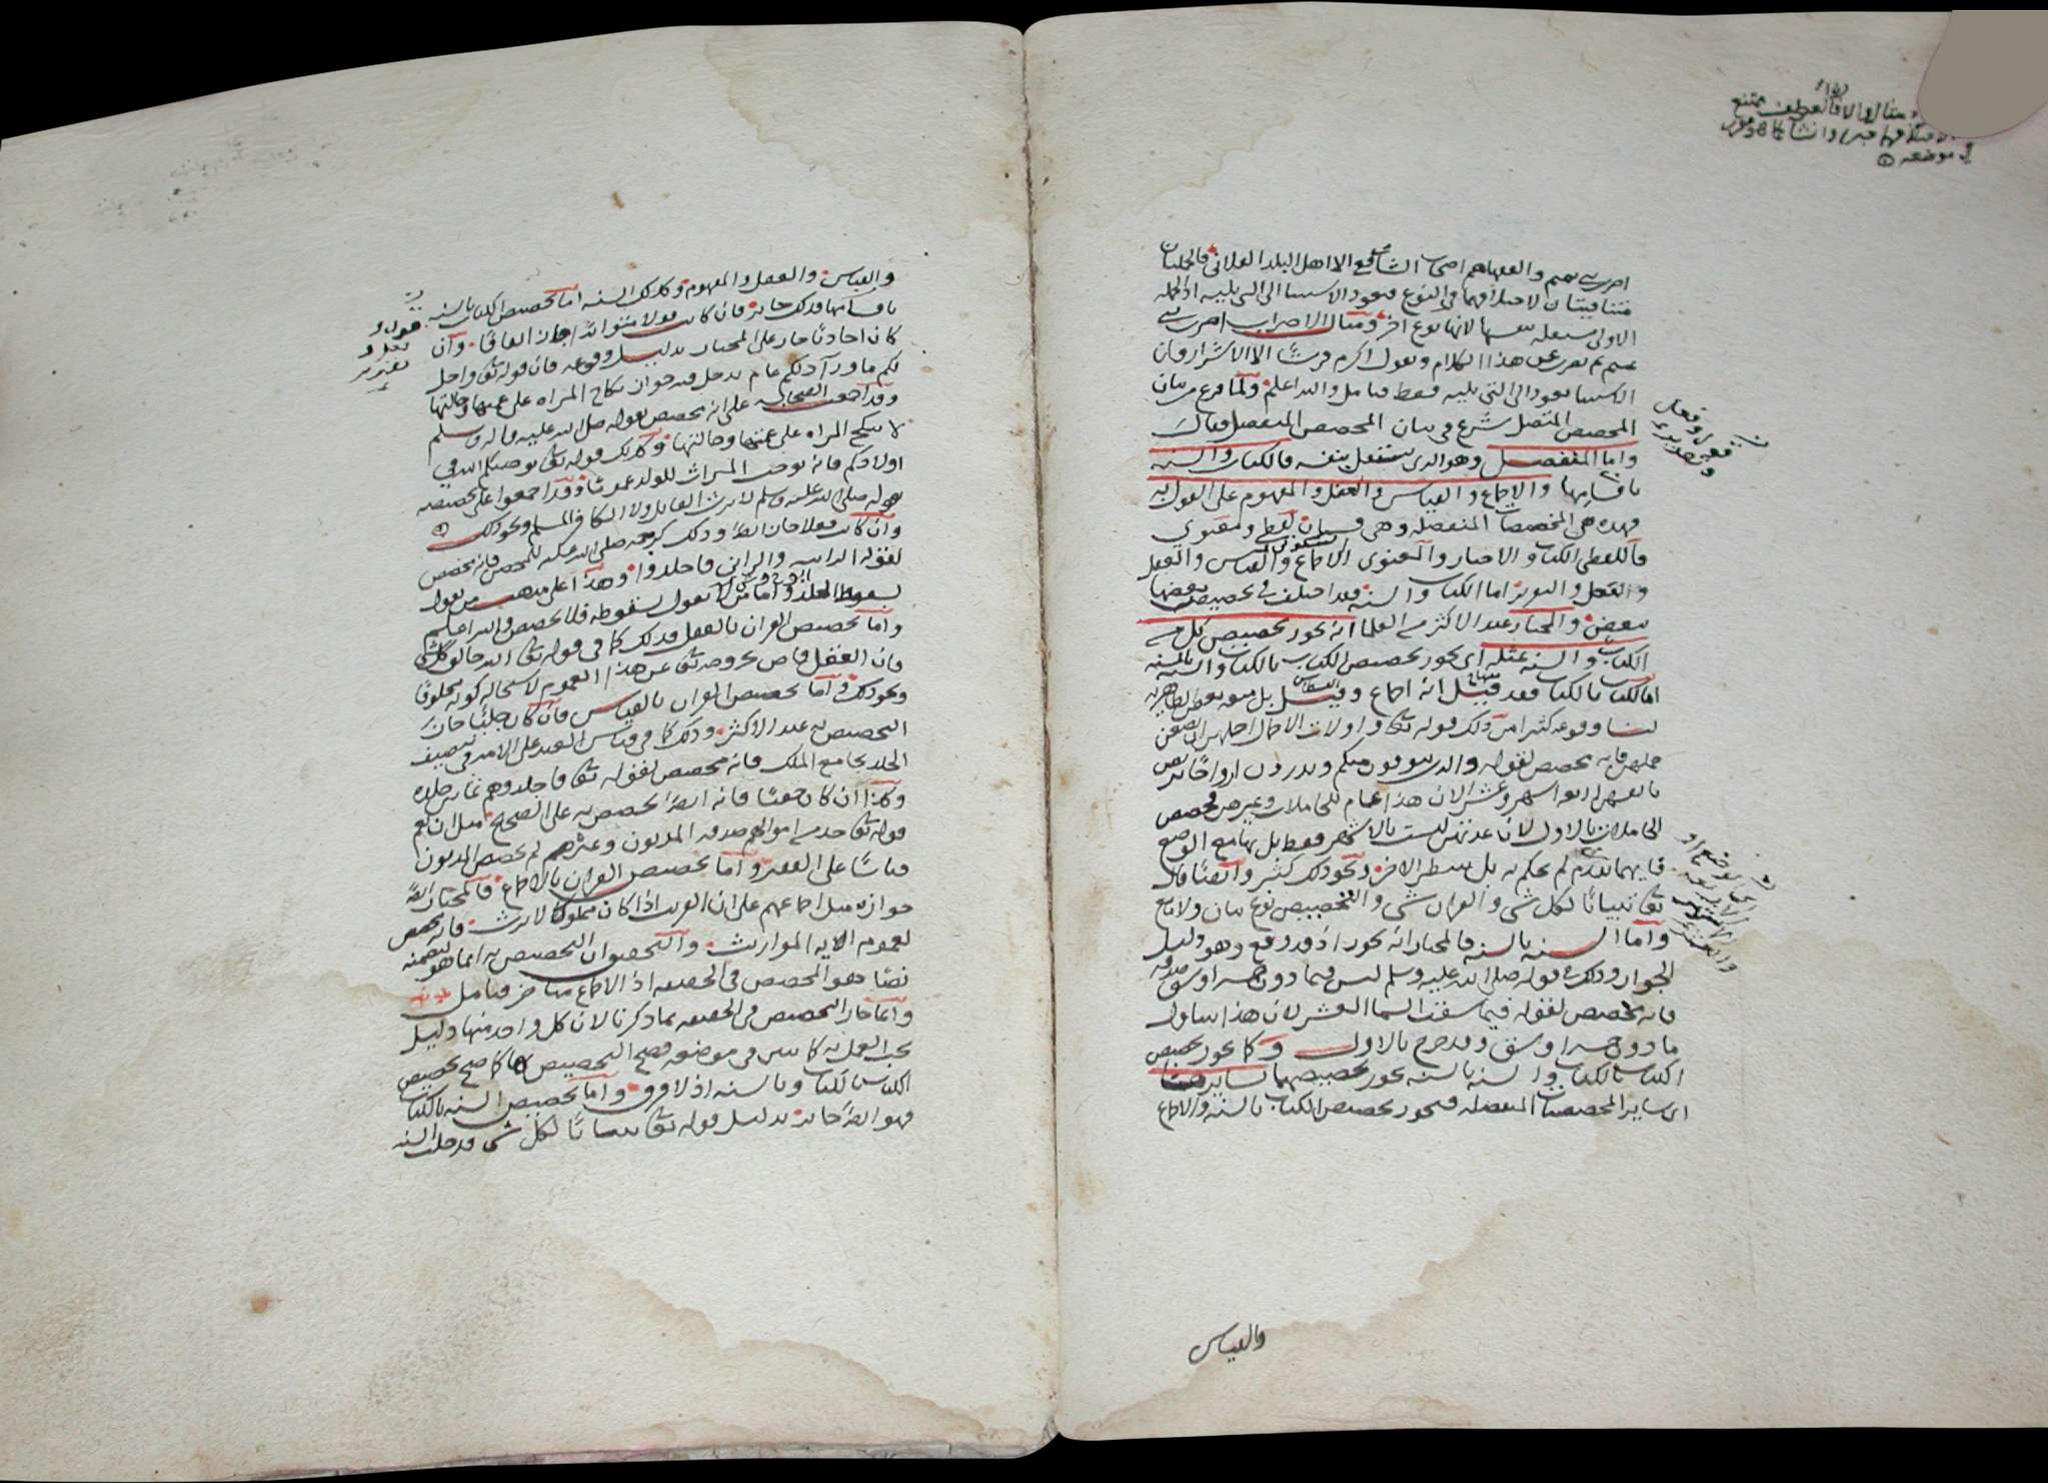 والفقهاهم اصحاب الشافعي الا اهل البلد الفلاني فالجملتان
الاولى لانها نوع اخر ومثال الاضراب
تميم ثم عن هذا الكلام وتقول اكرم قريشًا الا الاشرار فان
يعود الى التي تليه فقط فتامل والله اعلم ولما فرغ من بيان
المخصص المتصل شرع في بيان المخصص المنفصل فقال
واما المنفصل وهو الذي يستقل بنفسه فالكتاب والسنه
باقسامها والاجماع والقياس والعقل والمفهوم على القول به
فهذه هي المخصصات المنفصله وهي قسمان لفظي ومعنوي
فاللفظي الكتاب والاخبار والمعنوي الاجماع والقياس والعقل
اما الكتاب والسنه فقد اختلف في تخصيص بعضها
ببعض والمختار عند الاكثر من العلما انه يجوز تخصيص كل من
الكتاب والسنه بمثله اي يجوز تخصيص الكتاب بالكتاب والسنه بالسنه
اما الكتاب بالكتاب فقد قيل انه اجماع وقيل بل
لنا وقوعه كثيرا من ذلك قوله تعالى واولات الاحمال اجلهن ان يضعن
حملهن فانه مخصص لقوله والذين يتوفون منكم ويذرون ازواجًا يتربصن
بانفسهن اربعه اشهر وعشرا لان هذا عام للحاملات وغيرهن فخصص
الحاملات بالاول لان عدتهن ليست بالاشهر فقط بل بها مع الوضع
فايهما تقدم لم يحكم به بل ينتظر الاخر ونحو ذلك كثير وايضًا قال
تعالى تبيانًا لكل شي والقران شي والتخصيص نوع بيان ولا مانع
واما السنه بالسنه فالمختار انه يجوز اذ قد وقع وهو دليل
الجواز وذلك قوله صلى الله عليه وسلم ليس فيما دون خمسه اوسق صدقه
فانه مخصص لقوله فيما سقت السما العشر لان هذا يتناول
ما دون خمسه اوسق وقد خرج بالاول وكما يجوز تخصيص
الكتاب بالكتاب والسنه بالسنه يجوز تخصيصهما بسايرها
اي ساير المخصصات المنفصله فيجوز تخصيص الكتاب بالسنه والاجماع
والقياس
والقياس والعقل والمفهوم وكذلك السنه اما تخصيص الكتاب بالسنه
باقسامها فذلك جايز فان كانت قولا متواترًا جاز اتفاقًا وان
كان احاديًا جاز على المختار بدليل وقوعه فان قوله تعالى واحل
لكم ما ورآ ذلكم عام يدخل فيه جواز نكاح المراه على عمتها وخالتها
وقد اجمعت الصحابه على انه مخصص بقوله صلى الله عليه واله وسلم
لا تنكح المراه على عمتها وخالتها وكذلك قوله تعالى يوصيكم الله في
اولادكم فانه يوجب الميراث للولد عمومًا وقد اجمعوا على تخصيصه
بقوله صلى الله عليه وسلم لا يرث القاتل ولا الكافر المسلم ونحو ذلك
وان كانت فعلا جاز ايضًا وذلك كرجمه صلى الله عليه للمحصن فانه مخصص
لقوله الزانيه والزاني فاجلدوا وهذا على مذهب من يقول
بسقوط الجلد واما من لا يقول بسقوطه فلا تخصيص والله اعلم
واما تخصيص القران بالعقل فذلك كما في قوله تعالى الله خالق كل شي
فان العقل قاض بخروجه تعالى عن هذا العموم لاستحاله كونه مخلوقًا
ونحو ذلك واما تخصيص القران بالقياس فان كان جليًا جاز
التخصيص به عند الاكثر وذلك كما في قياس العبد على الامه في تنصيف
الجلد بجامع الملك فانه مخصص لقوله تعالى فاجلدوهم ثمانين جلده
وكذا ان كان خفيًا فانه ايضًا يخصص به على الصحيح مثل ان يعم
قوله تعالى خذ من اموالهم صدقه المديون وغيره ثم يخصص المديون
قياسًا على الفقير واما تخصيص القران بالاجماع فالمختار ايضًا
جوازه مثل اجماعهم على ان القريب اذا كان مملوكا لا يرث فانه مخصص
لعموم الايه المواريث والتحقيق ان التخصيص به انما هو لتضمنه
نصًا وهو المخصص في الحقيقه اذ الاجماع متاخر فتامل
وانما جاز التخصيص في الحقيقه بما ذكرنا لان كل واحد منها دليل
يجب العمل به كما بين في موضعه فصح التخصيص بها كما صح تخصيص
الكتاب بالكتاب وبالسنه اذ لا فرق واما تخصيص السنه بالكتاب
فهو ايضًا جايز بدليل قوله تعالى تبيانًا لكل شي فدخلت السنه